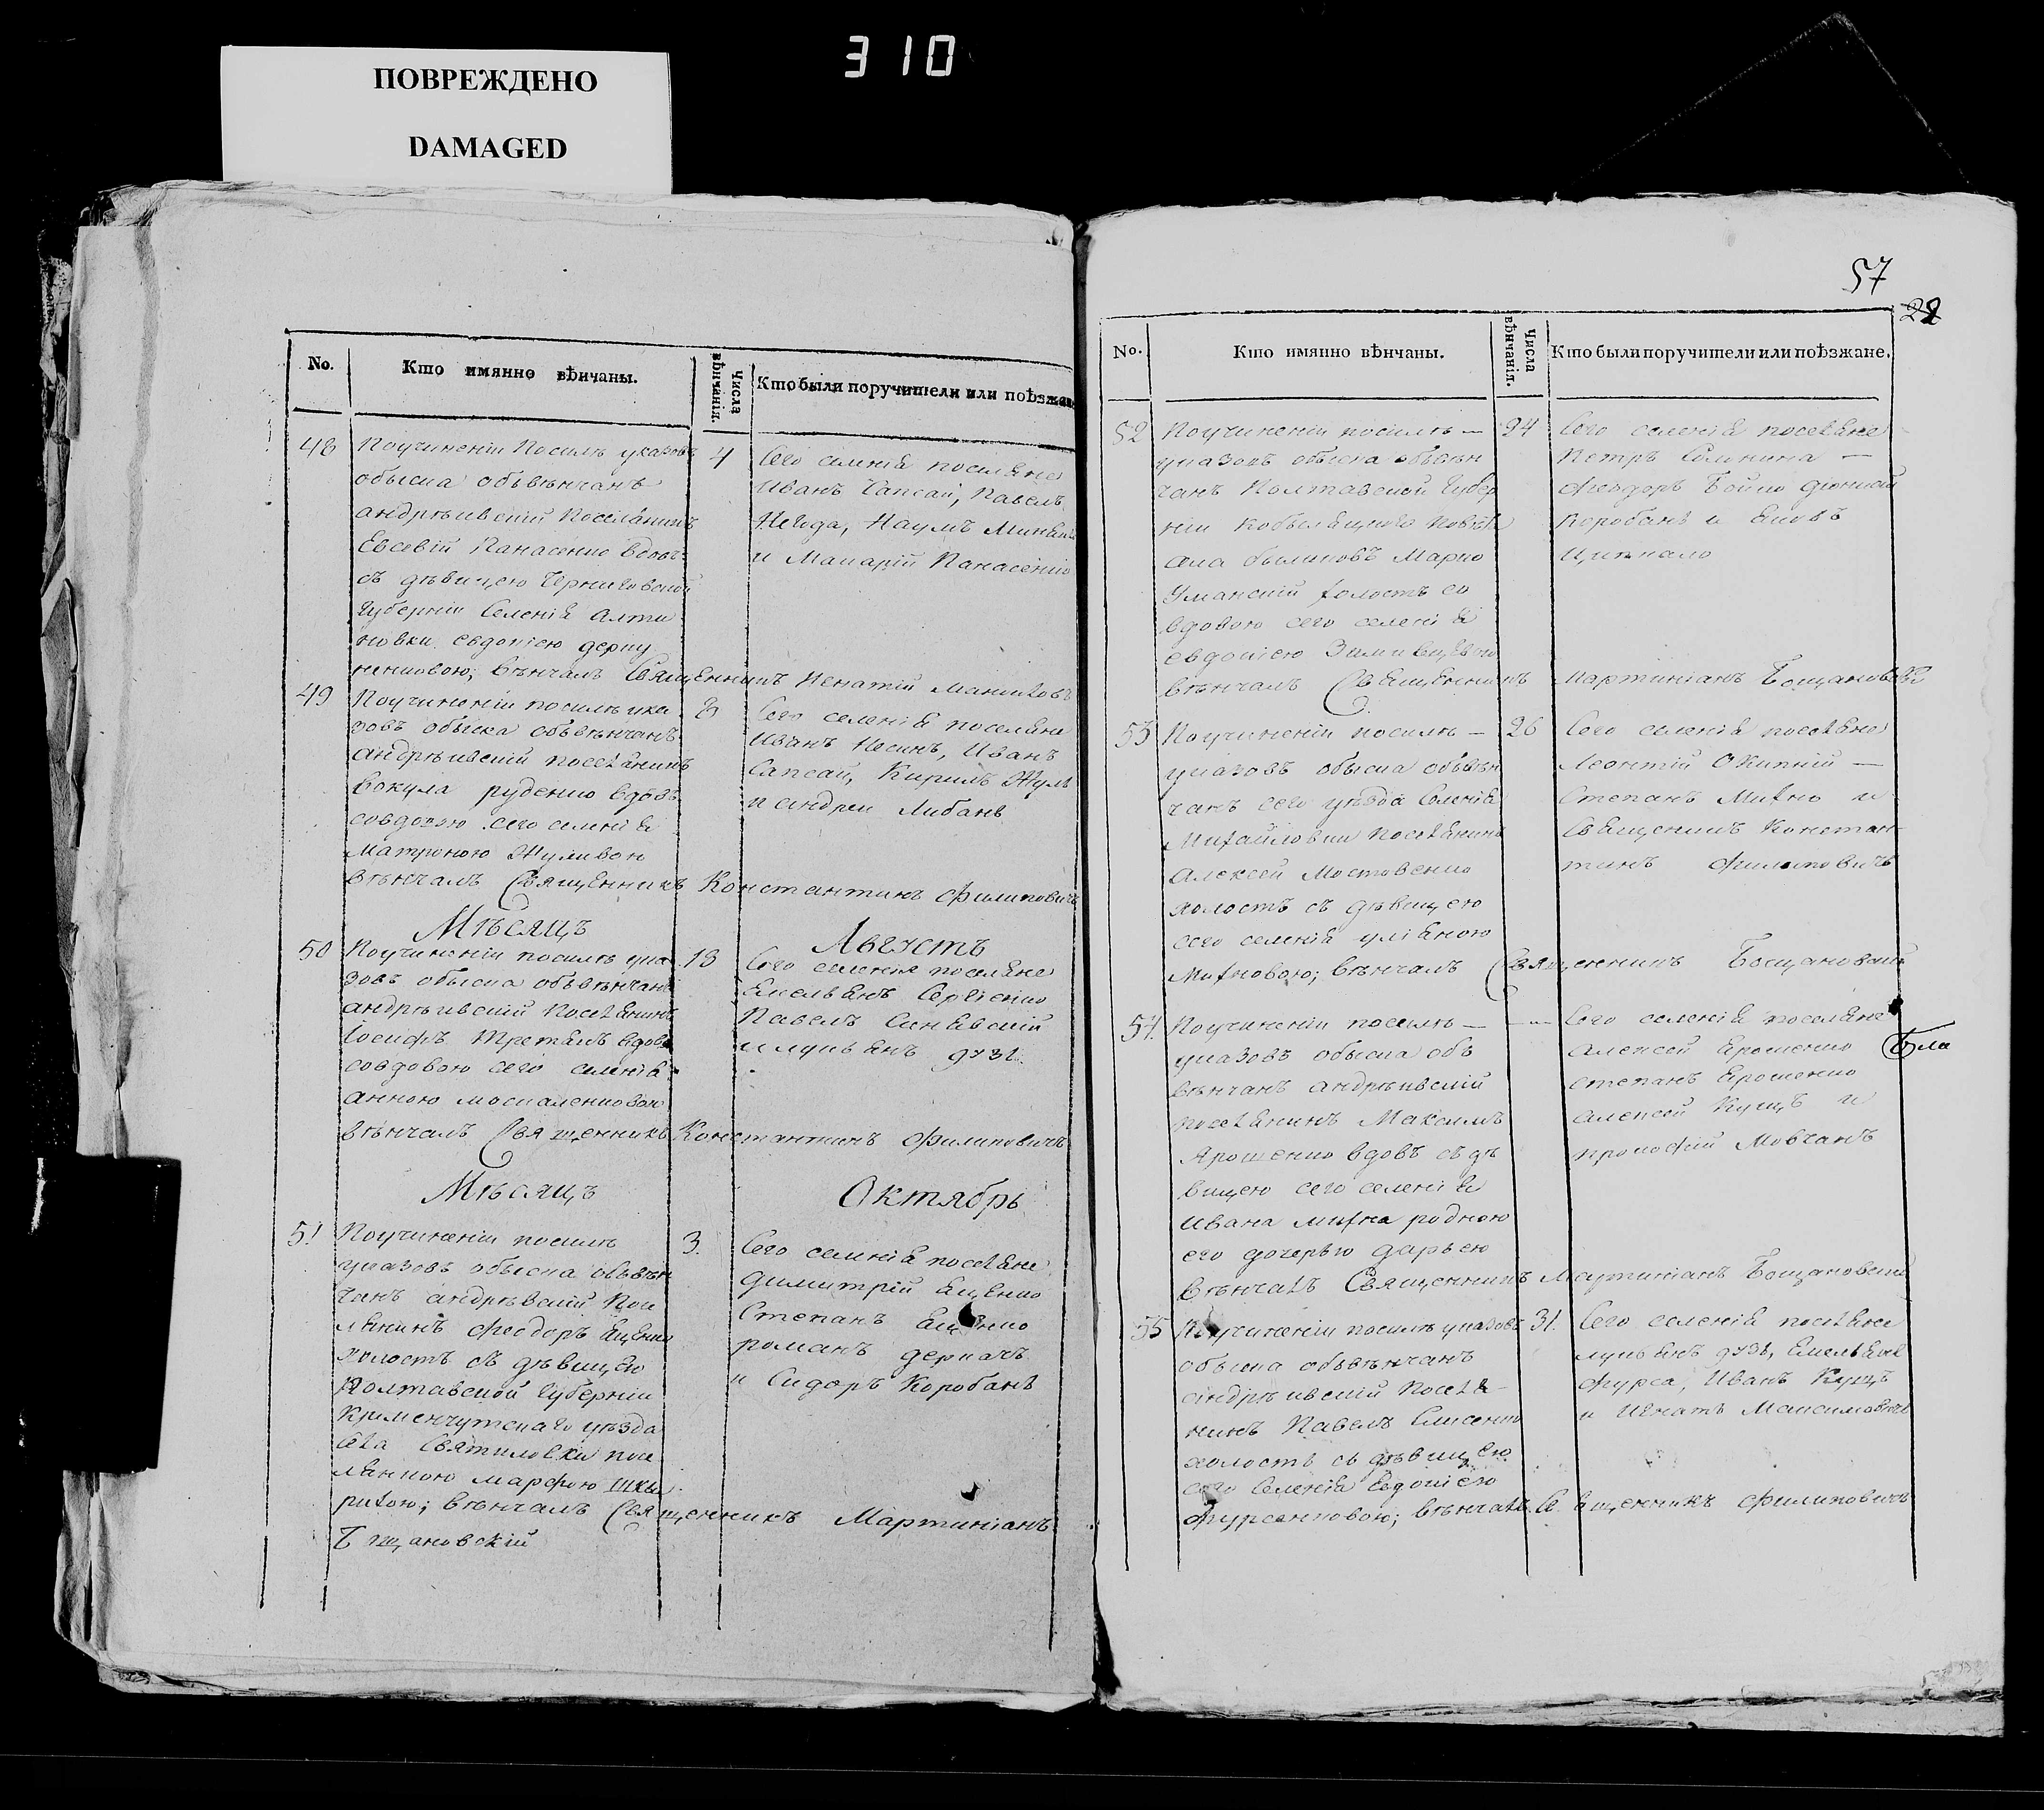 310
ПОВРЕЖДЕНО
DAMAGED
No.
Кто имянно вѣнчаны.
Числа вѣнчанія.
Кто были поручители или поѣзжан
48
Поучиненіи посилѣ указовъ
обыска обвѣнчанъ
андрѣивскій поселянинъ
Евсевій Панасенко вдовъ
съ дѣвицею Черниговской
Губерніи Селенія Алти
новки евдокіею
вѣнчалъ Священникъ
4
Сего селенія поселяне
Иванъ Сапсай, Павелъ
Негода, Наумъ
и Макарій Панасенко
49
Поучиненіи посилѣ ука
зовъ обыска обвѣнчанъ
андрѣивскій поселянинъ
Вокула руденко вдовъ
совдовою сего селенія
Матроною Жуливою
вѣнчалъ Священникъ Константинъ Филиповичъ
8
Сего селенія поселяне
Иванъ Несинъ, Иванъ
Сапсай, Кирилъ Жуль
и андреи Либань
Мѣсяцъ Августъ
50
Поучиненіи посилѣ ука
зовъ обыска обвѣнчанъ
андрѣивскій поселянинъ
Іосифъ Третякъ вдовъ
совдовою сего селенія
анною москаленковою
вѣнчалъ Священникъ Константинъ Филиповичъ
13
Сего селенія поселяне
Емельянъ Сергіенко
Павелъ Синявскій
и лукьянъ дузь
Мѣсяцъ Октябрь
51
Поучиненіи посилѣ
указовъ обыска обвѣн
чанъ андрѣвскій посе
лянинъ Феодоръ Яценко
холостъ съ дѣвицею
Полтавской Губерніи
Кременчутскаго уѣзда
села Святиловки посе
лянкою марфою шкы
рикою; вѣнчалъ Священникъ Мартиніанъ
Бощановскій
3.
Сего селенія поселяне
димитрій Яценко
Степанъ Яценко
романъ деркачъ
и Сидоръ Коробань
57
22
No.
Кто имянно вѣнчаны.
Числа вѣнчанія.
Кто были поручители или поѣзжане.
52
Поучиненіи посилѣ —
указовъ обыска обвѣн
чанъ Полтавской Губер
ніи Кобыляцкого повѣта
села быликовъ Марко
Уманскій холостъ со
вдовою сего селенія
евдокіею
вѣнчалъ Священникъ мартиніанъ Бощановскій
24
Сего селенія поселяне
Петръ —
Феодоръ Бойко дионисій
Коробань и Яковъ
53
Поучиненіи посилѣ —
указовъ обыска обвѣн
чанъ сего уѣзда селенія
Михайловки поселянинъ
Алексей Мостовенко
холостъ съ дѣвицею
сего селенія уліяною
Михновою; вѣнчалъ Священникъ Бощановскій
26
Сего селенія поселяне
Леонтій —
Степанъ Михно и
Священникъ Констан
тинъ Филиповичъ
54.
Поучиненіи посилѣ —
указовъ обыска об
вѣнчанъ андрѣивскій
поселянинъ Максимъ
Ярошенко вдовъ съ дѣ
вицею сего селенія
Ивана михна родною
его дочерью дарьею
вѣнчалъ Священникъ Мартиніанъ Бощановскій
— —
Сего селенія поселяне
Алексей Ярошенко
степанъ Ярошенко
алексей Куцъ и
прокофій Мовчанъ
55
Поучиненіи посилѣ указовъ
обыска обвѣнчанъ
андрѣивскій поселя-
нинъ Павелъ Елисенко
холостъ съ дѣвицею
сего селенія Евдокіею
Фурсенковою; вѣнчалъ Священникъ Филиповичъ
31.
Сего селенія поселяне
лукьянъ дузь, Емельянъ
Фурса, Иванъ Куцъ
и Игнатъ Максимовичъ